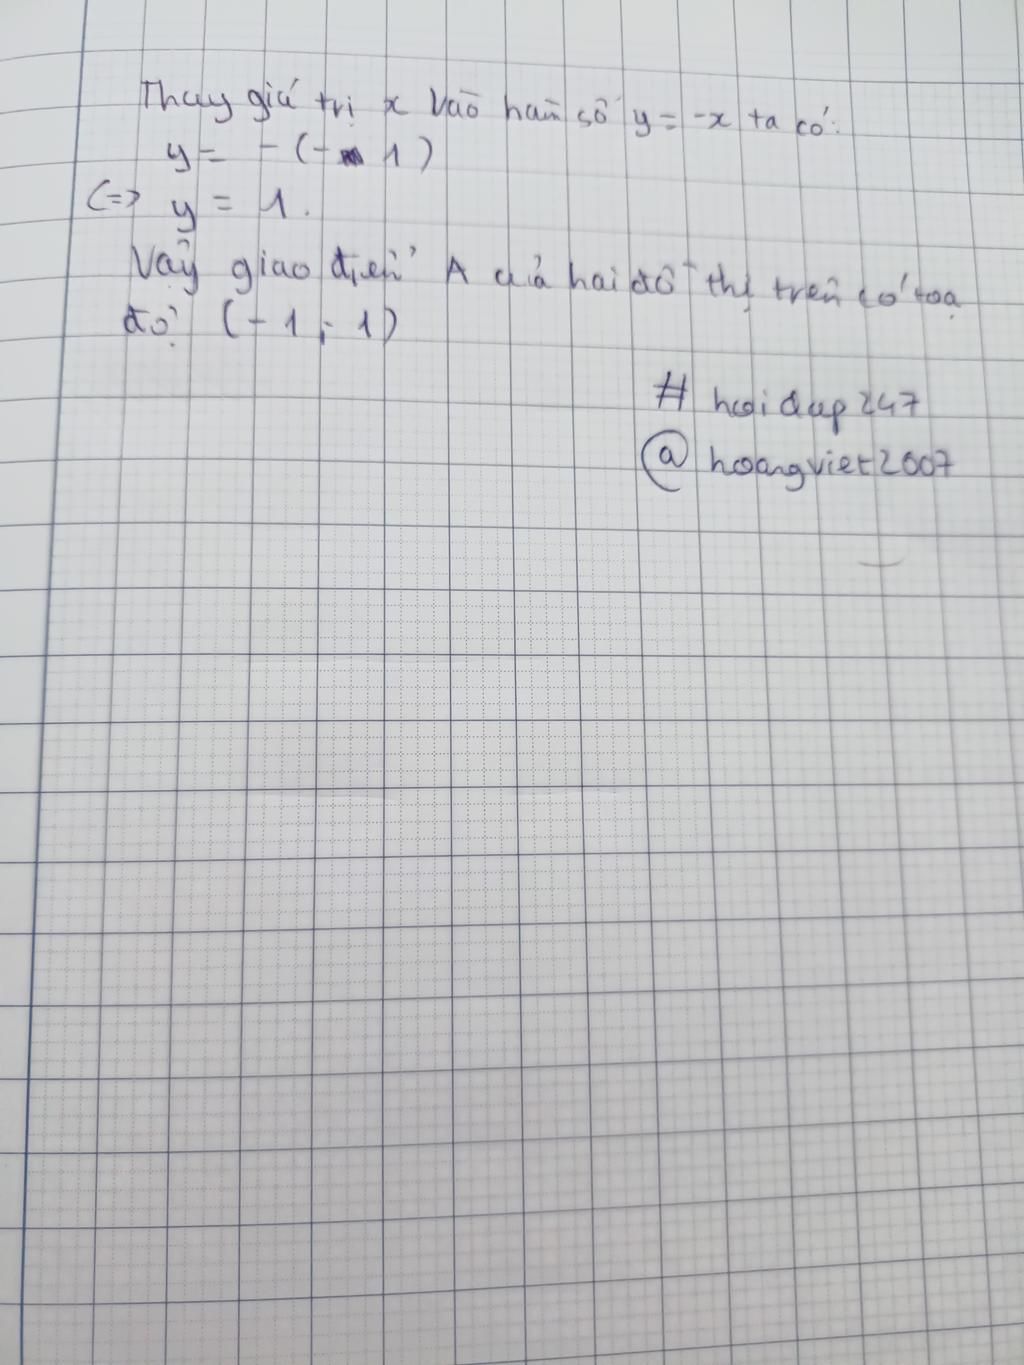 Thay giá trị x vào hàm số y = -x ta có:
y = - (- 1)
(=> y = 1.
Vậy giao điểm A của hai đồ thị trên có toạ
độ (-1; 1)
# hoidap247
@ hoangviet2007